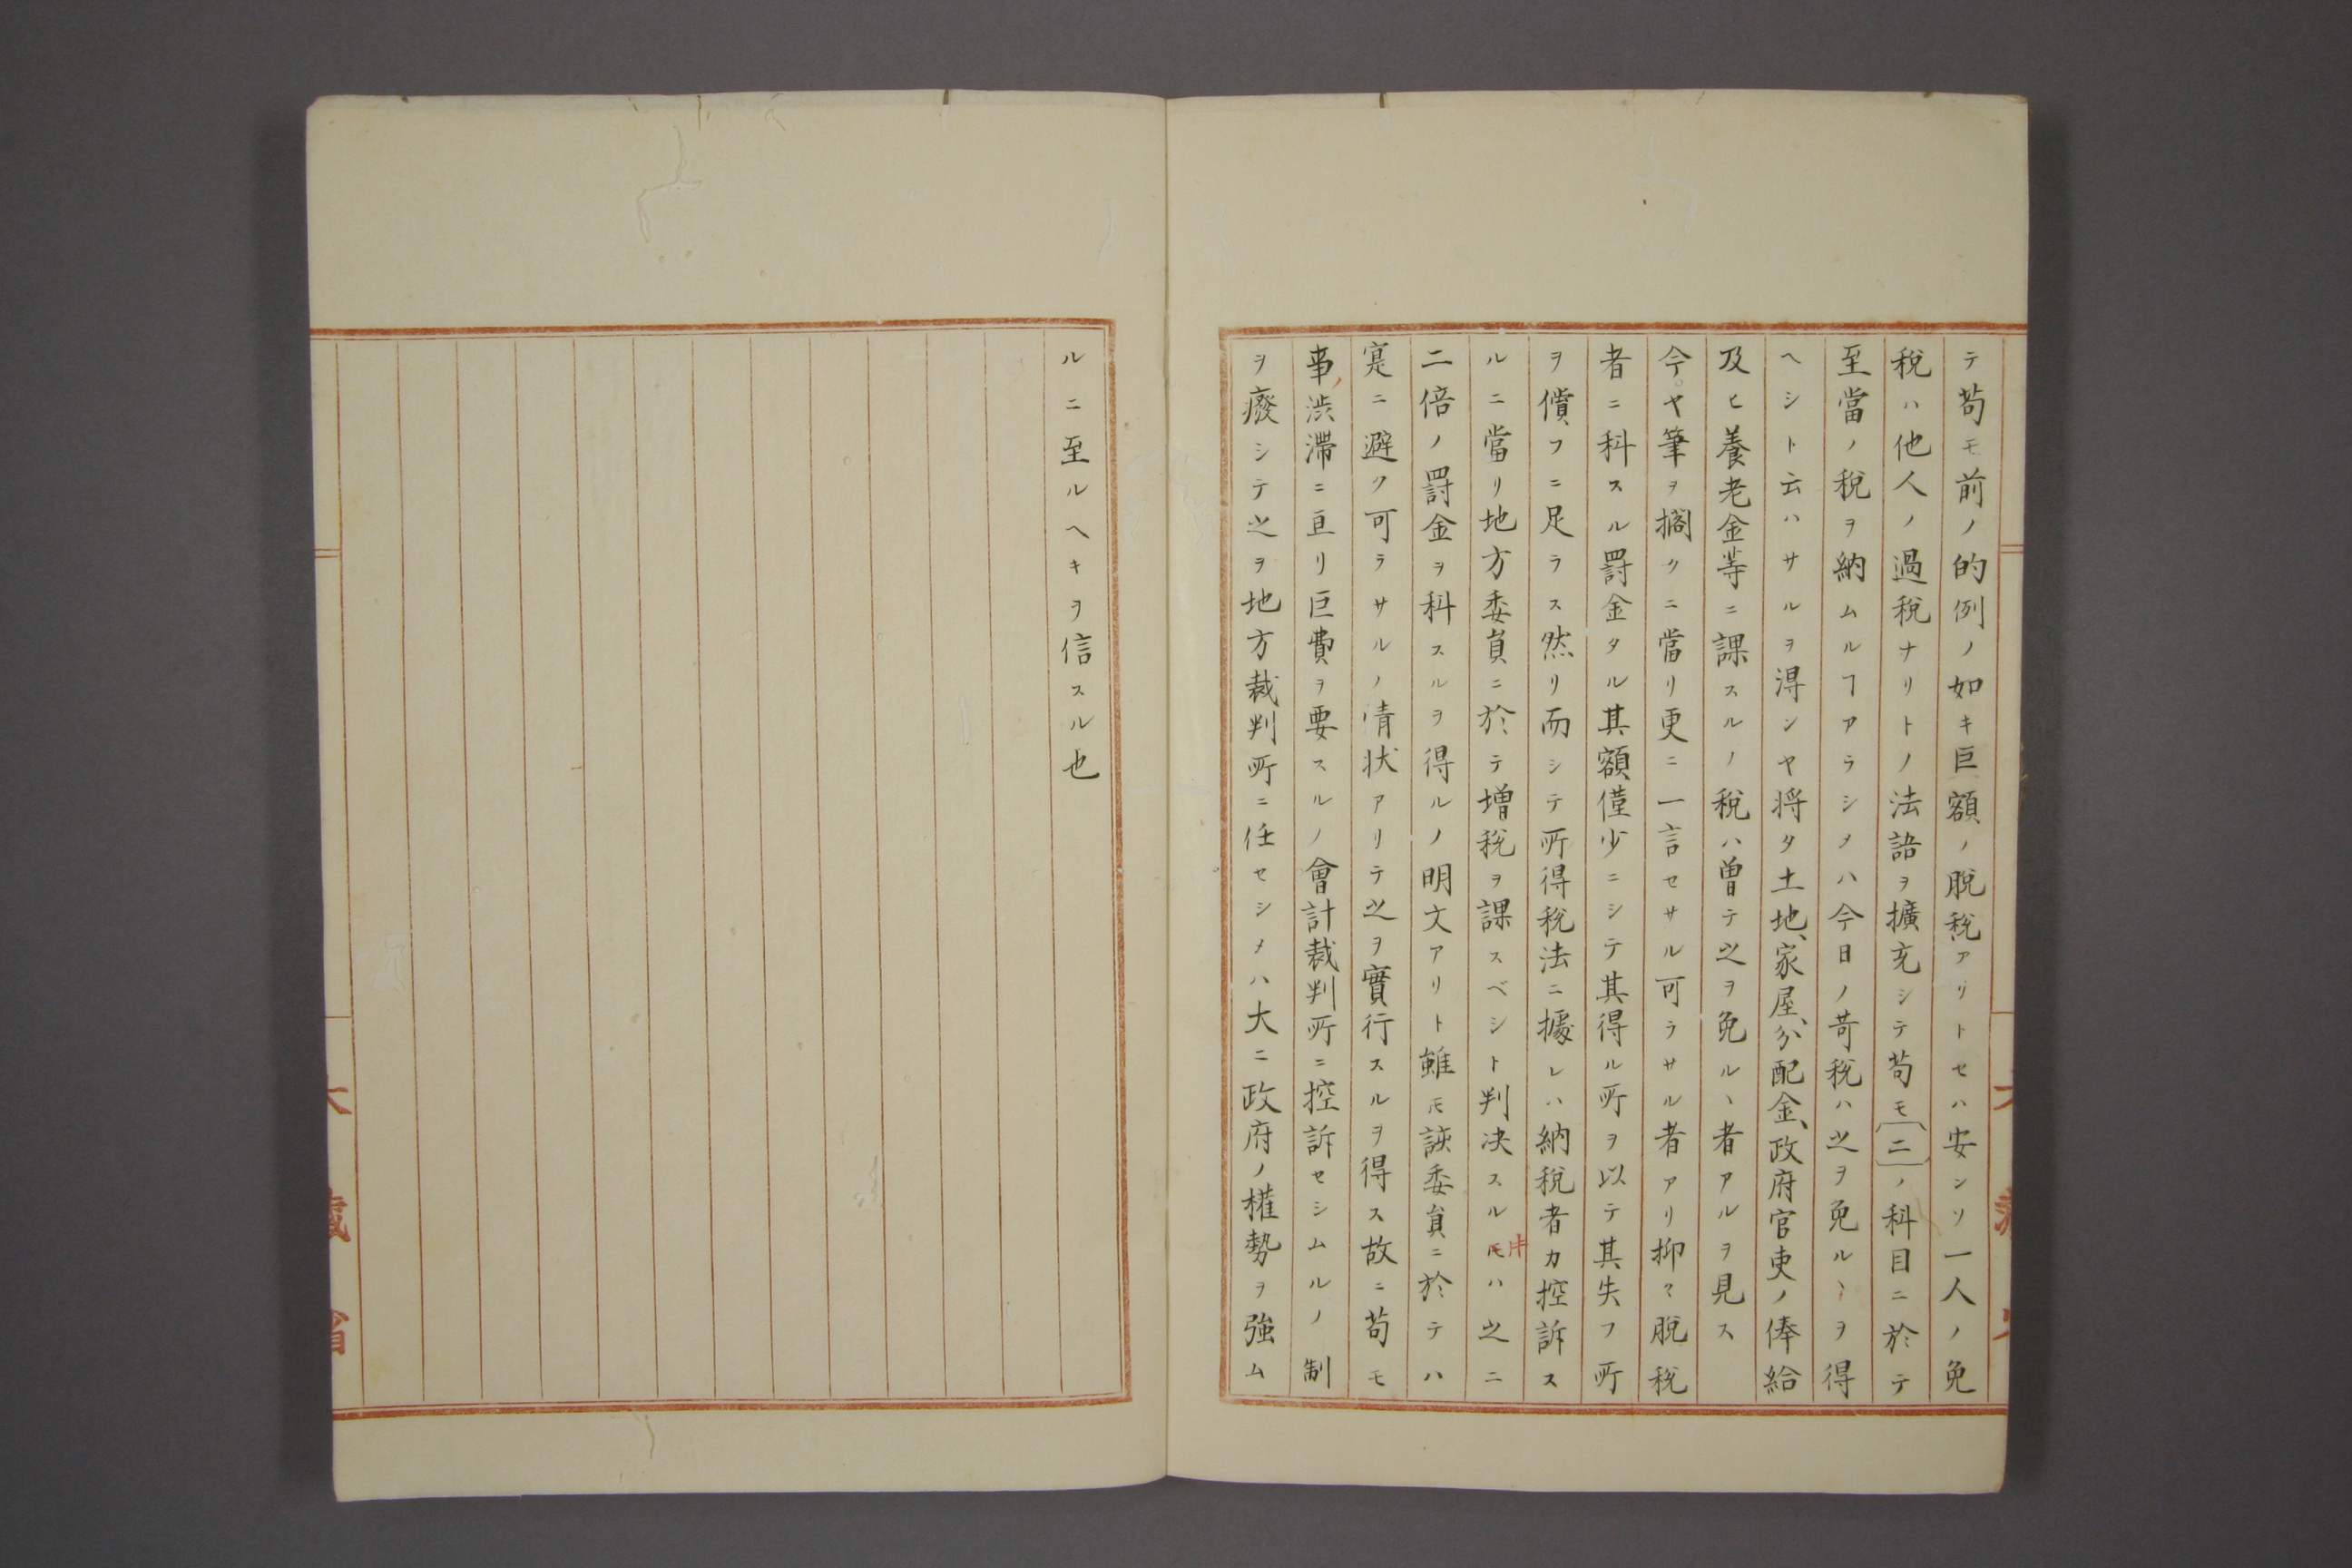 テ苟モ前ノ的例ノ如キ巨額ノ脱税アリトセハ安ンソ一人ノ免
税ハ他人ノ過税ナリトノ法語ヲ擴充シテ苟モ〔二〕ノ科目ニ於テ
至當ノ税ヲ納ムルヿアラシメハ今日ノ苛税ハ之ヲ免ルヽヲ得
ヘシト云ハサルヲ得ンヤ将タ土地、家屋、分配金、政府官吏ノ俸給
及ヒ養老金等ニ課スルノ税ハ曽テ之ヲ免ルヽ者アルヲ見ス
今ヤ筆ヲ擱クニ當リ更ニ一言セサル可ラサル者アリ抑々脱税
者ニ科スル罸金タル其額僅少ニシテ其得ル所ヲ以テ其失フ所
ヲ償フニ足ラス然リ而シテ所得税法ニ據レハ納税者カ控訴ス
ルニ當リ地方委員ニ於テ増税ヲ課スベシト判决スル𪜈ハ之ニ
二倍ノ罸金ヲ科スルヲ得ルノ明文アリト雖𪜈該委員ニ於テハ
寔ニ避ク可ラサルノ情状アリテ之ヲ實行スルヲ得ス故ニ苟モ
事渋滞ニ亘リ巨費ヲ要スルノ會計裁判所ニ控訴セシムルノ制
ヲ癈シテ之ヲ地方裁判所ニ任セシメハ大ニ政府ノ權勢ヲ強ム
ルニ至ルヘキヲ信スル也
大藏省